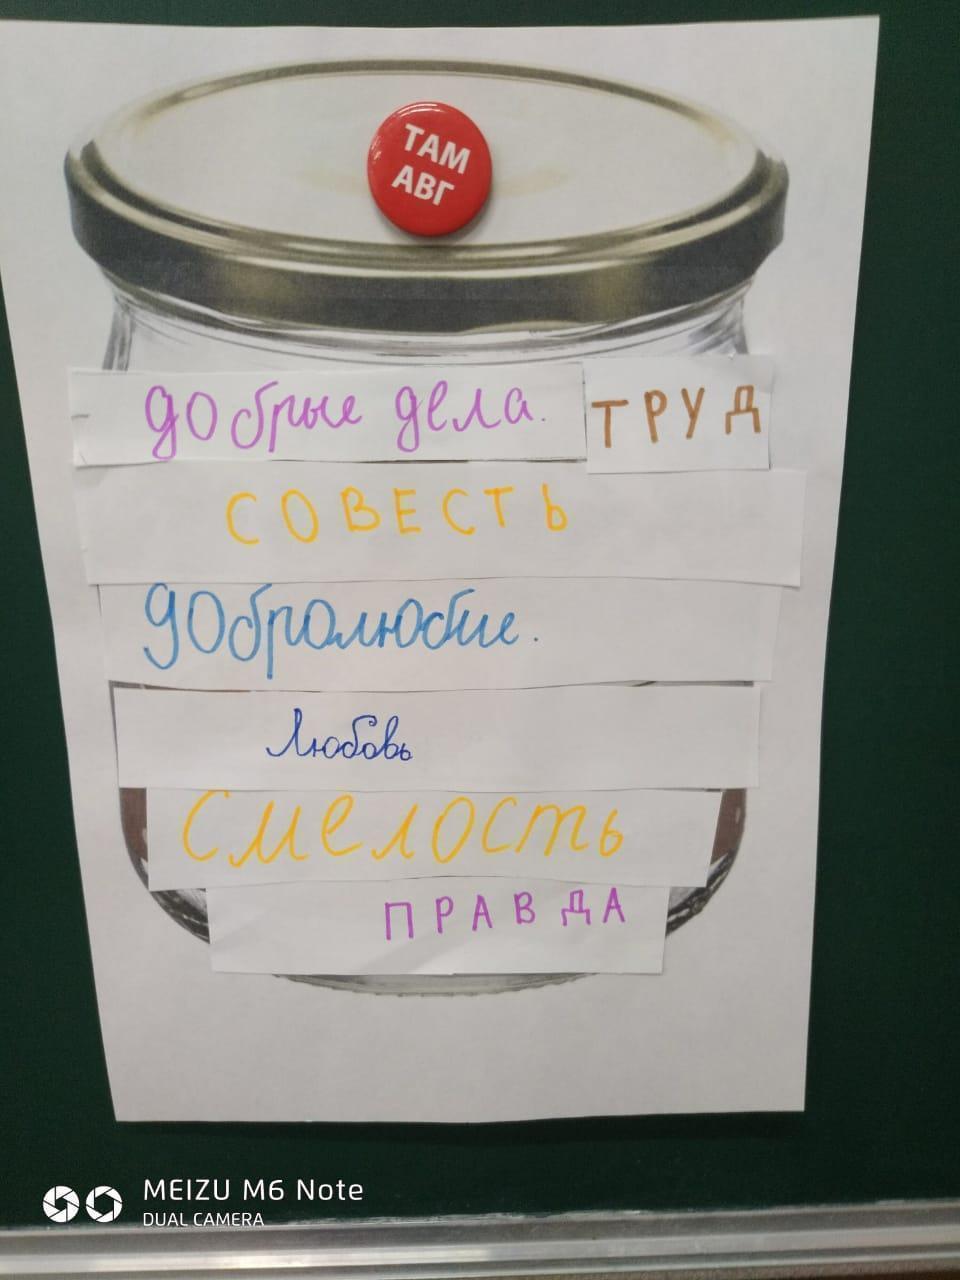 ТАМ
АВГ
добрые дела. ТРУД
СОВЕСТЬ
добролюбие.
Любовь
Смелость
ПРАВДА
MEIZU M6 Note
DUAL CAMERA